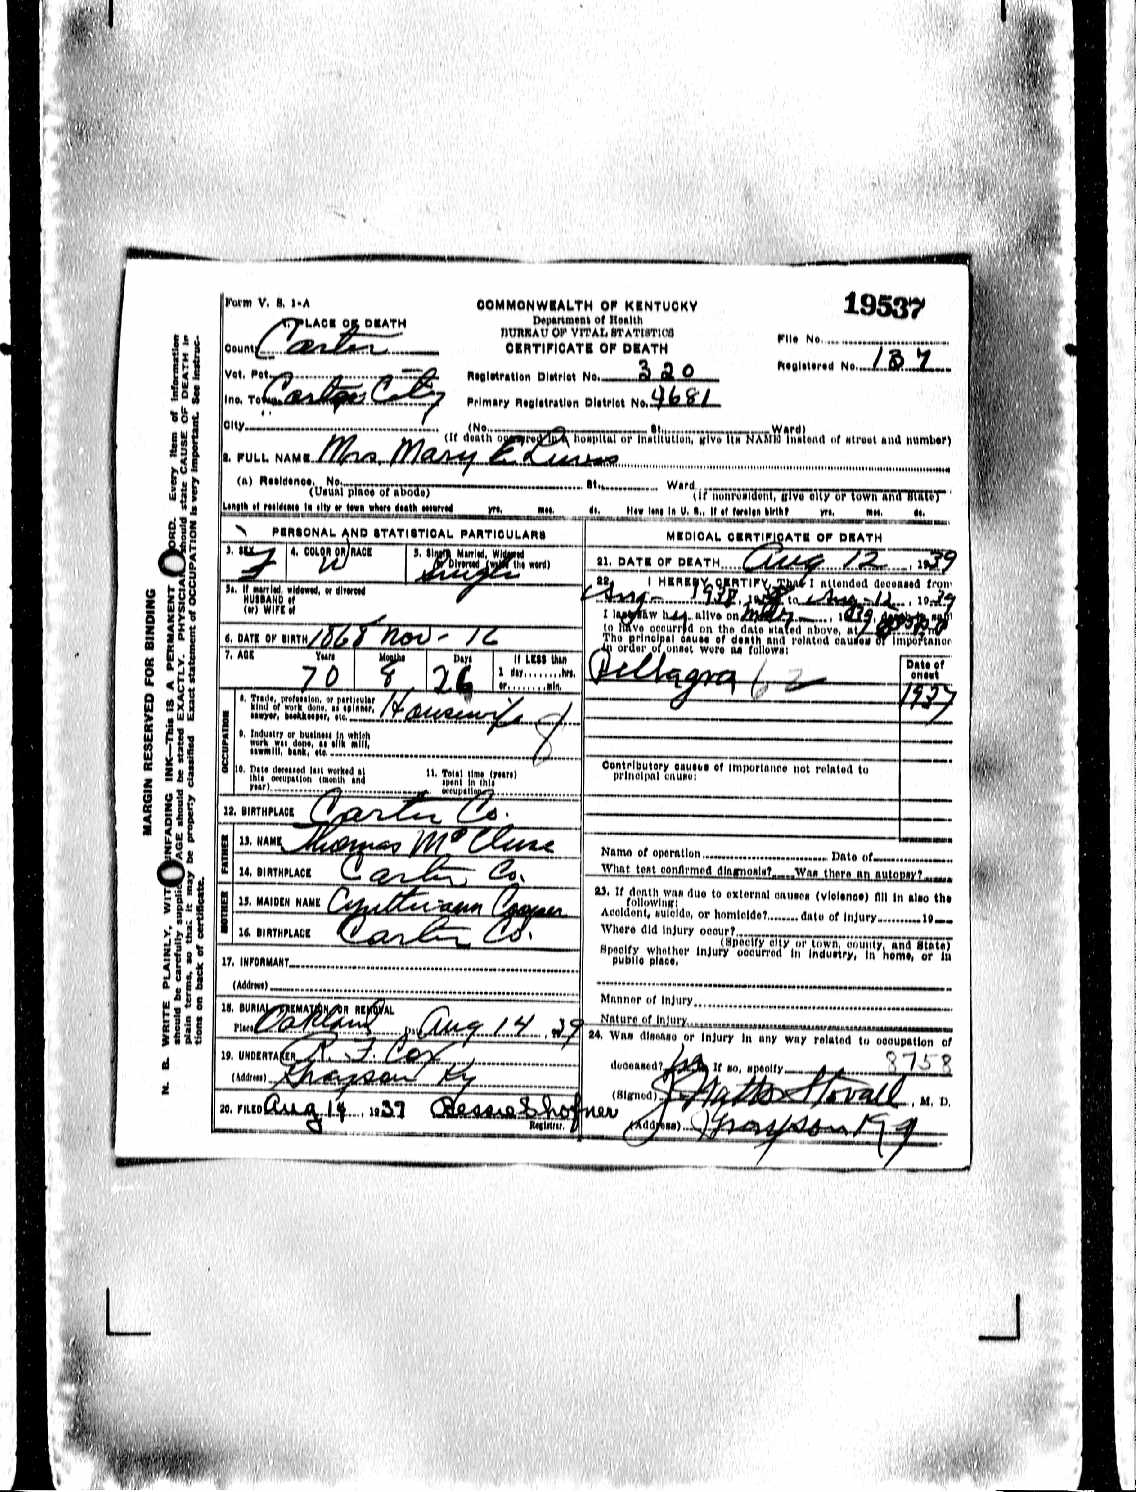 Form V. S. 1-A
COMMONWEALTH OF KENTUCKY
19537
Department of Health
BUREAU OF VITAL STATISTICS
CERTIFICATE OF DEATH
1. PLACE OF DEATH
File No.
County Carter
Registered No. 137
Vot. Pct.
Registration District No. 320
Inc. Town Carter City
Primary Registration District No. 4681
City (No. St. Ward)
(If death occurred in a hospital or institution, give its NAME instead of street and number)
2. FULL NAME Mrs Mary E.
(a) Residence. No. St., Ward
(Usual place of abode) (If nonresident, give city or town and State)
Length of residence in city or town where death occurred yrs. mos. ds. How long in U. S., if of foreign birth? yrs. mos. ds.
PERSONAL AND STATISTICAL PARTICULARS
3. SEX F
4. COLOR OR RACE W
5. Single, Married, Widowed
or Divorced (write the word)
Single
5a. If married, widowed, or divorced
HUSBAND of
(or) WIFE of
6. DATE OF BIRTH 1868 Nov - 16
7. AGE Years Months Days If LESS than
70 8 26 1 day, hrs.
or min.
OCCUPATION
8. Trade, profession, or particular
kind of work done, as spinner,
sawyer, bookkeeper, etc. Housewife
9. Industry or business in which
work was done, as silk mill,
sawmill, bank, etc.
10. Date deceased last worked at
this occupation (month and
year)
11. Total time (years)
spent in this
occupation
12. BIRTHPLACE Carter Co.
FATHER
13. NAME Thomas
14. BIRTHPLACE Carter Co.
MOTHER
15. MAIDEN NAME
16. BIRTHPLACE Carter Co.
17. INFORMANT
(Address)
18. BURIAL, CREMATION OR REMOVAL
Place Oakland Date Aug 14, 1939
19. UNDERTAKER R. F. Cox
(Address) Grayson Ky
20. FILED Aug 14, 1939 Bessie Shofner
Registrar.
MEDICAL CERTIFICATE OF DEATH
21. DATE OF DEATH Aug 12, 1939
22. I HEREBY CERTIFY, That I attended deceased from
Aug - 1938, to Aug - 12, 1939
I last saw her alive on 1939,
to have occurred on the date stated above, at
The principal cause of death and related causes of importance
in order of onset were as follows:
Date of
onset
Pellagra 62
1937
Contributory causes of importance not related to
principal cause:
Name of operation Date of
What test confirmed diagnosis? Was there an autopsy?
23. If death was due to external causes (violence) fill in also the
following:
Accident, suicide, or homicide? date of injury 19
Where did injury occur?
(Specify city or town, county, and State)
Specify whether injury occurred in industry, in home, or in
public place.
Manner of injury
Nature of injury
24. Was disease or injury in any way related to occupation of
deceased? If so, specify 8758
(Signed) J. Watts Stovall, M. D.
(Address) Grayson Ky
MARGIN RESERVED FOR BINDING
N. B. WRITE PLAINLY, WITH UNFADING INK—THIS IS A PERMANENT RECORD. Every item of information
should be carefully supplied. AGE should be stated EXACTLY. PHYSICIANS should state CAUSE OF DEATH in
plain terms, so that it may be properly classified. Exact statement of OCCUPATION is very important. See instruc-
tions on back of certificate.